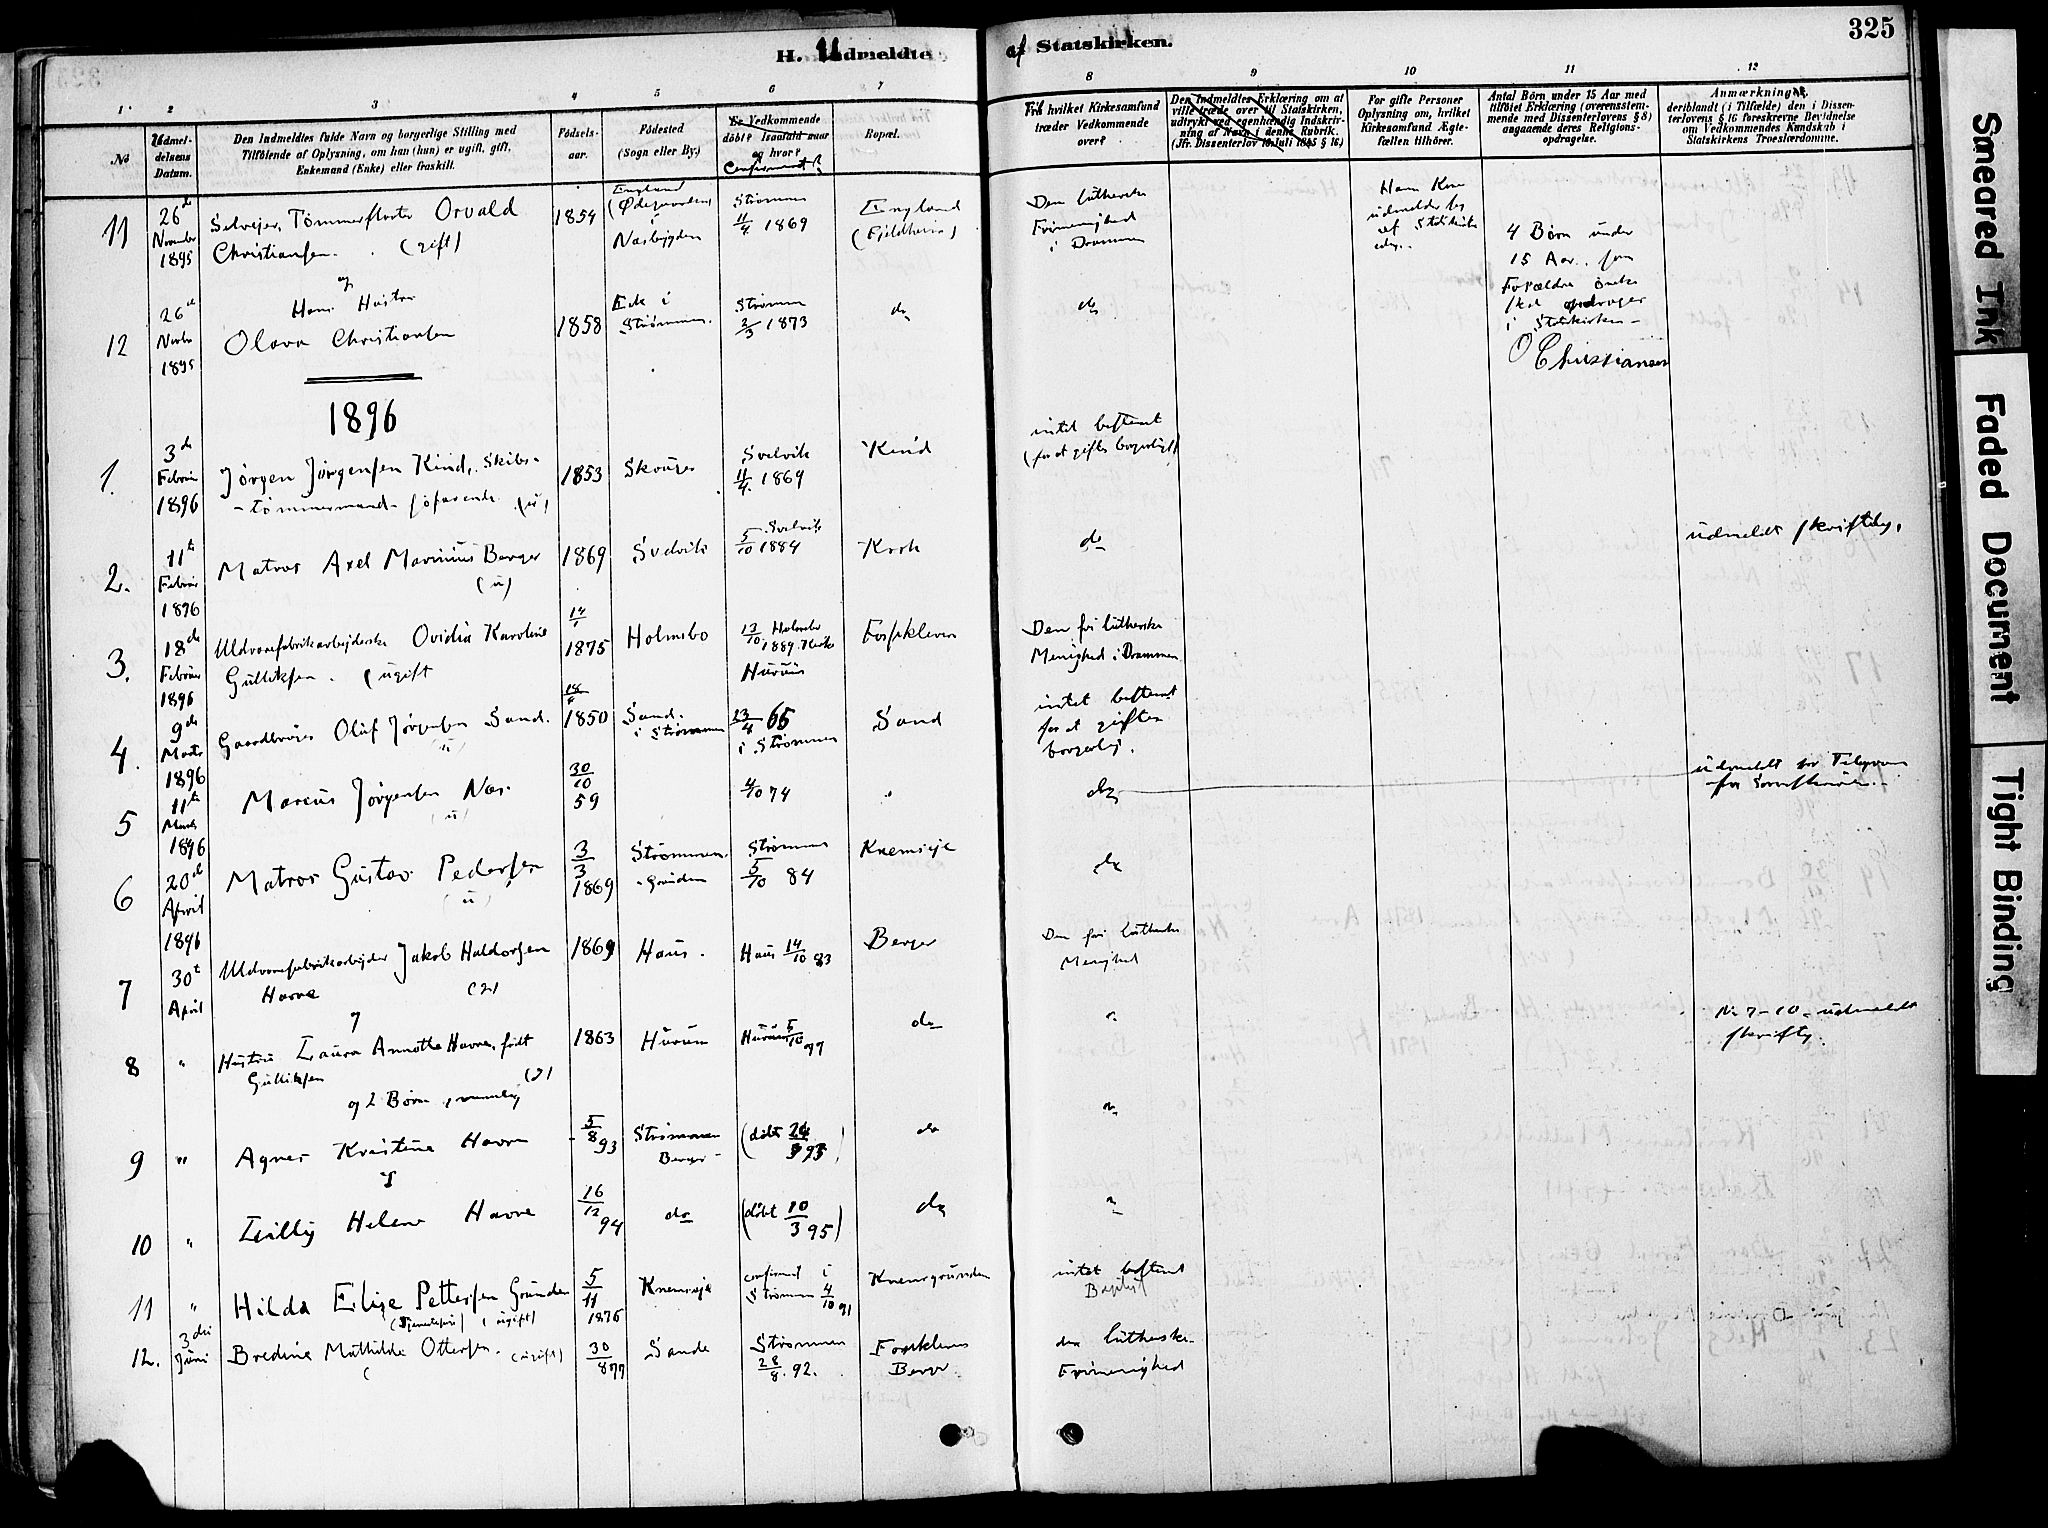 325
H. Udmeldte af Statskirken.
1 2 3 4 5 6 7 8 9 10 11 12
No
Udmel-
delsens
Datum.
Den Indmeldtes fulde Navn og borgerlige Stilling med
Tilføiende af Oplysning, om han (hun) er ugift, gift,
Enkemand (Enke) eller fraskilt.
Fødsels-
aar.
Fødested
(Sogn eller By.)
Er Vedkommende
døbt? Isaafald naar
og hvor?
Confirmeret?
Bopæl.
Til hvilket Kirkesamfund
træder Vedkommende
over?
Den Indmeldtes Erklæring om at
ville træde over til Statskirken,
udtrykt ved egenhændig Indskriv-
ning af Navn i denne Rubrik.
(Jfr. Dissenterlov 16 Juli 1845 § 16.)
For gifte Personer
Oplysning om, hvilket
Kirkesamfund Ægte-
fællen tilhører.
Antal Børn under 15 Aar med
tilføiet Erklæring (overensstem-
mende med Dissenterlovens § 8)
angaaende deres Religions-
opdragelse.
Anmærkninger,
deriblandt (i Tilfælde) den i Dissen-
terlovens § 16 foreskrevne Bevidnelse
om Vedkommendes Kundskab i
Statskirkens Troeslærdomme.
11
26de
November
1895
Selveier, Tømmerfløter Orvald
Christiansen. (gift)
1854
England
(Ødegaarden)
i
Næsbygden
Strømmen
11/4 1869
England
(Fjeldheim)
Den lutherske
Frimenighed
i Drammen
Hans Kone
udmelder sig
af Statskirken
4 Børn under
15 Aar, som
Forældre ønske
skal opdrages
i Statskirken
O Christiansen
og
Hans Hustru
12
26d
Novbr
1895
Olava Christiansen
1858
Eek i
Strømmen.
Strømm
2/3 1873
do
do
1896
1.
3de
Februar
1896
Jørgen Jørgensen Kind, Skibs-
tømmermand - søfarende (u)
1853
Skouger
Svelvik
11/4. 1869
Kind
intet bestemt
(for at giftes borgerligt)
2.
11te
Februar
1896
Matros Axel Marinius Berger
(u)
1869
Svelvik
Svelvik
5/10 1884
Krok
do
udmeldt skriftlig.
3.
18de
Februar
1896
Uldvarefabrikarbejderske Ovidia Karoline
Gulliksen. (ugift
14/1
1875
Holmsbo
13/10 Holmsbo
1889. Kirke
Hurum
Fossekleven
Den fri lutherske
Menighed i Drammen
4.
9de
Marts
1896
Gaardbruger Oluf Jørgensen Sand.
(u)
1850
Sand.
i Strømmen
13/4 66
i Strømmen
Sand
intet bestemt
for at giftes
borgerlig.
5
11te
Marts
1896
Marcus Jørgensen Næs.
(u)
30/10
59
4/10 74
"
do
udmeldt pr Telegram
6
20de
April
1896
Matros Gustav Pedersen
(u)
3/3
1869
Strømmen.
Grunden
Strømmen
5/10 84
Knemseje
do
7
30t
April
Uldvarefabrikarbejder Jakob Haldorsen
Havre (g)
1869
Haus.
Haus 14/10 83
Berger
Den fri lutherske
Menighed
og
8
"
Hustru Laura Annette Havre, født
Gulliksen (g)
1863
Hurum
Hurum 5/10 77
do
"
No 7-10 udmeldt
skriftlig.
og 2 Børn, nemlig
9
"
Agnes Kristine Havre
5/8 93
Strømmen
Berger
(døbt 24/9 93)
do
"
og
10
"
Lilly Helene Havre
16/12 94
do
(døbt 10/3 95)
do
"
11
"
Hilda Elise Pettersen Grunden
(Tjenestepige) (ugift)
5/11
1876
Knemseje
confirmeret i
Strømmen 4/10 91
Knemsgrunden
intet bestemt
Baptist
12.
3die
Juni
Bredine Mathilde Ottersen. (ugift)
30/8 77
Sande
Strømmen
28/8. 92.
Fossekleven
Berger
den lutherske
Frimenighed
Smeared Ink
Faded Document
Tight Binding